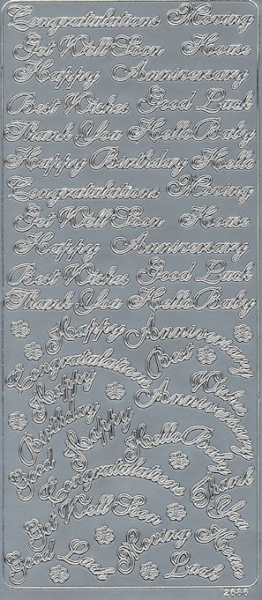 Congratulations Moving
Get Well Soon House
Happy Anniversary
Best Wishes Good Luck
Thank You Hello Baby
Happy Birthday Hello
Congratulations Moving
Get Well Soon House
Happy Anniversary
Best Wishes Good Luck
Thank You Hello Baby
Happy Anniversary
Congratulations Best
Happy
Birthday Happy
Hello Baby
Good Congratulations Thank
You
Get Well Soon
Good Luck Moving
Luck